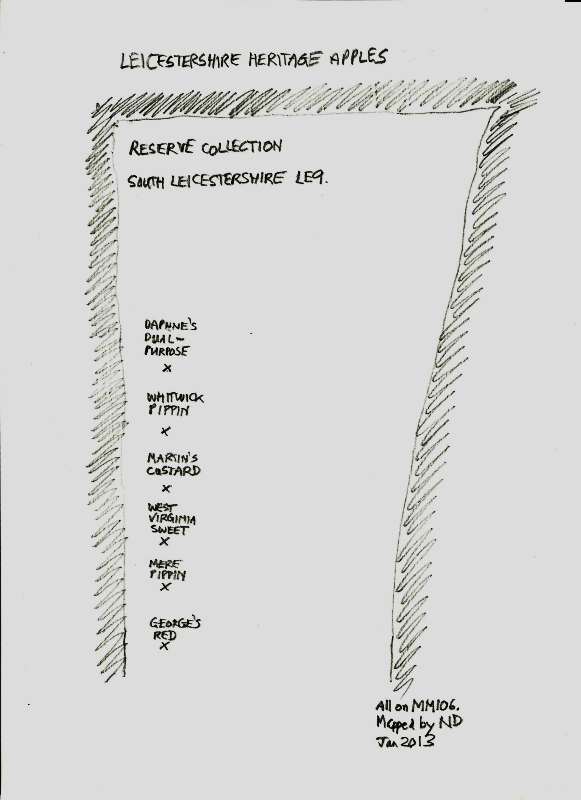 LEICESTERSHIRE HERITAGE APPLES
RESERVE COLLECTION
SOUTH LEICESTERSHIRE LE9.
DAPHNE'S
DUAL-
PURPOSE
X
WHITWICK
PIPPIN
X
MARTIN'S
CUSTARD
X
WEST
VIRGINIA
SWEET
X
MERE
PIPPIN
X
GEORGE'S
RED
X
All on MM106.
Mapped by ND
Jan 2013